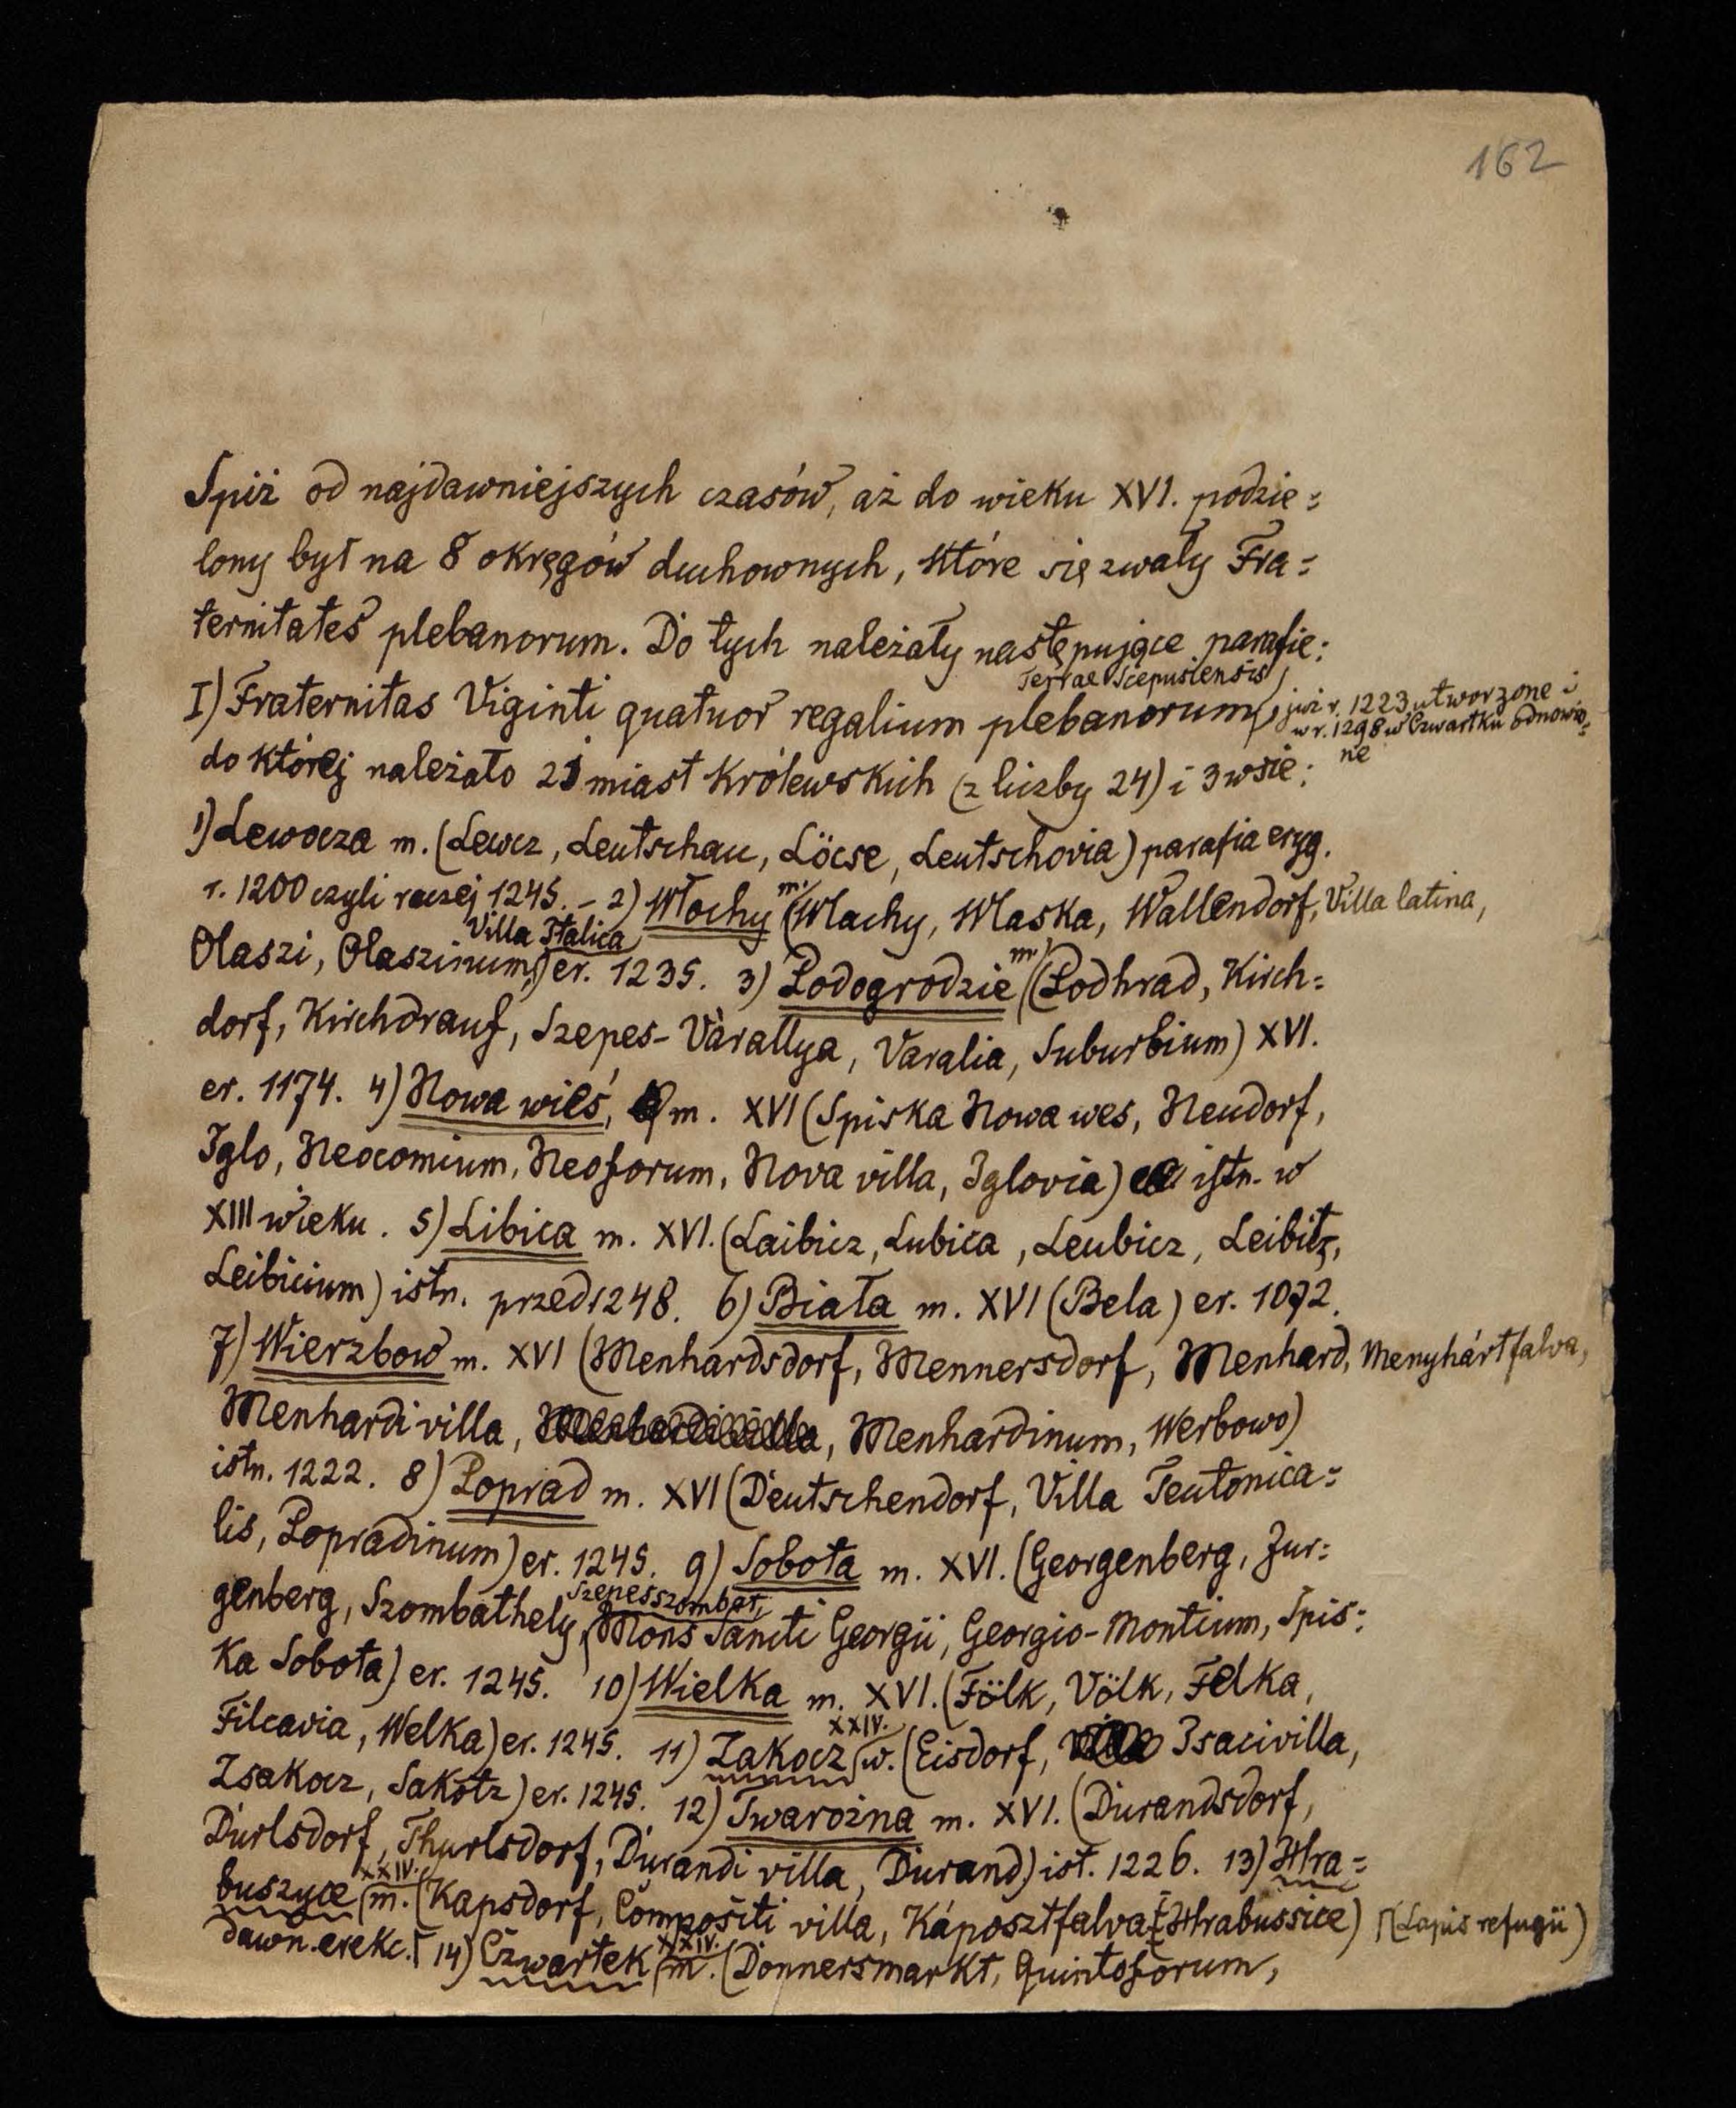 162
Spiż od najdawniejszych czasów, aż do wieku XVI. podzie=
lony był na 8 okręgów duchownych, które się zwały Fra=
ternitates plebanorum. Do tych należały następujące parafie:
Terrae Scepusiensis,
I) Fraternitas Viginti quatuor regalium plebanorum, już r. 1223 utworzone i
w r. 1298 w Czwartku odnowio=
ne
do której należało 21 miast królewskich (z liczby 24) i 3 wsie:
1) Lewocza m. (Lewcz, Leutschau, Löcse, Leutschovia) parafia eryg.
r. 1200 czyli raczej 1245. – 2) Włochy m. (Wlachy, Wlaska, Wallendorf, Villa latina,
Villa Italica
Olaszi, Olaszinum,) er. 1235. 3) Podogrodzie m. (Podhrad, Kirch=
dorf, Kirchdrauf, Szepes-Várallya, Varalia, Suburbium) XVI.
er. 1174. 4) Nowa wieś, m. XVI (Spiska Nowa wes, Neudorf,
Iglo, Neocomium, Neoforum, Nova villa, Iglovia) istn. w
XIII wieku. 5) Libica m. XVI. (Laibicz, Lubica, Leubicz, Leibitz,
Leibicium) istn. przed 1248. 6) Biała m. XVI (Bela) er. 1072.
7) Wierzbow m. XVI (Menhardsdorf, Mennersdorf, Menhard, Menyhártfalva,
Menhardi villa, Menhardinum, Werbowo)
istn. 1222. 8) Poprad m. XVI (Deutschendorf, Villa Teutonica=
lis, Popradinum) er. 1245. 9) Sobota m. XVI. (Georgenberg, Jur=
Szepesszombat,
genberg, Szombathely, Mons Sancti Georgii, Georgio-Montium, Spis=
ka Sobota) er. 1245. 10) Wielka m. XVI. (Fölk, Völk, Felka,
Filcavia, Welka) er. 1245. 11) Żakocz XXIV. w. (Eisdorf, Isacivilla,
Izsakocz, Sakotz) er. 1245. 12) Twarożna m. XVI. (Durandsdorf,
Durlsdorf, Thurlsdorf, Durandi villa, Durand) ist. 1226. 13) Hra=
buszyce XXIV. m. (Kapsdorf, Compositi villa, Káposztfalva, Hrabussice) (Lapis refugii)
dawn. erekc. 14) Czwartek XXIV. m. (Donnersmarkt, Quintoforum,